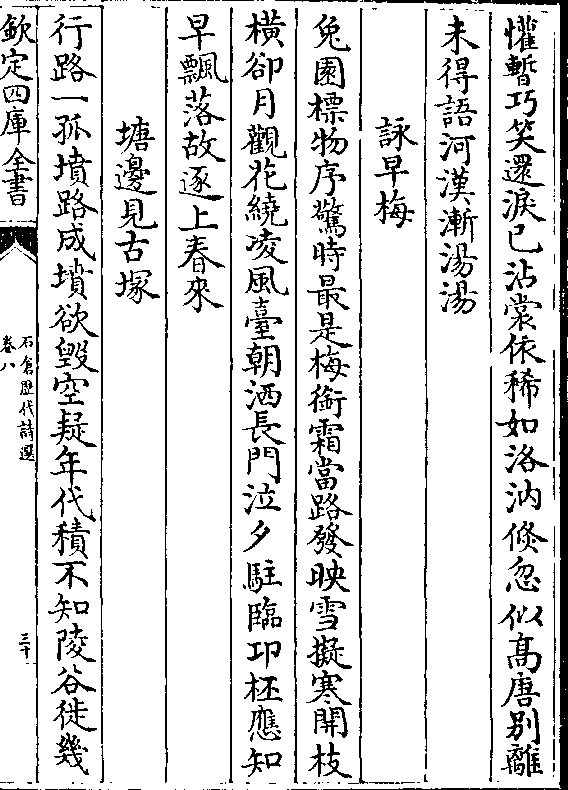 懽暫巧笑還淚已沾裳依稀如洛汭倐忽似髙唐别離
未得語河漢漸湯湯
詠早梅
兔園標物序驚時最是梅銜霜當路發映雪擬寒開枝
橫卻月觀花繞凌風臺朝洒長門泣夕駐臨卭杯應知
早飄落故逐上春來
塘邊見古塚
行路一孤墳路成墳欲毁空疑年代積不知陵谷徙幾
欽定四庫全書
石倉歴代詩選
卷八
三十